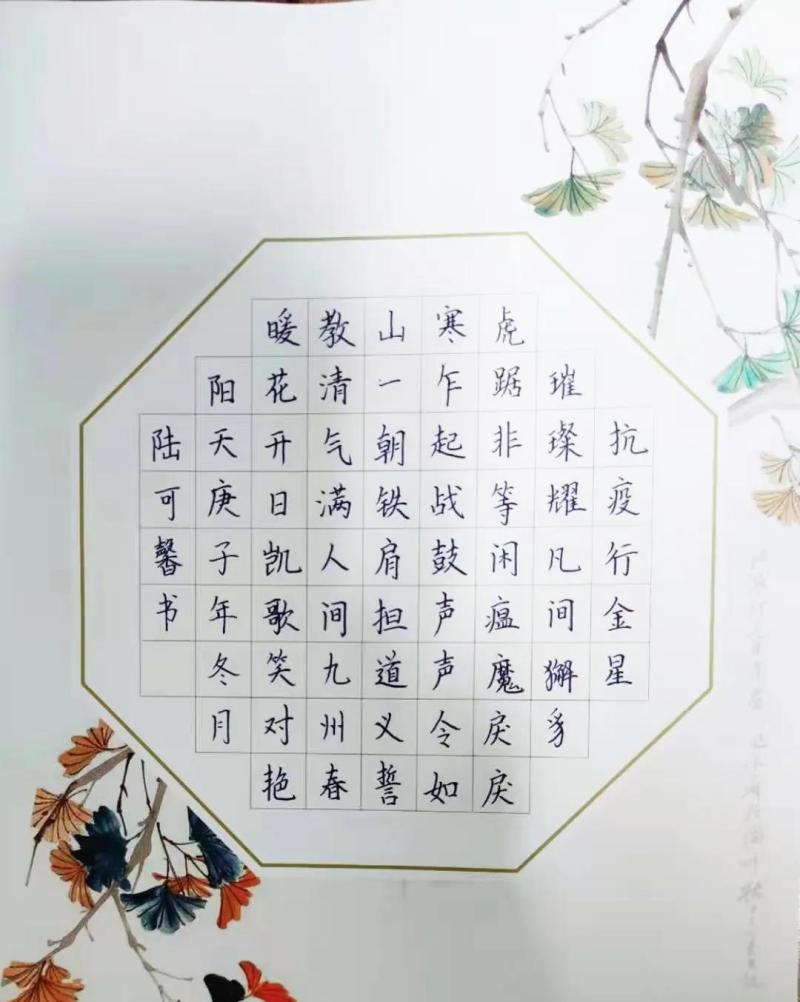 抗疫行金星
璀璨耀凡间獬豸
虎踞非等闲瘟魔戾戾
寒乍起战鼓声声令如
山一朝铁肩担道义誓
教清气满人间九州春
暖花开日凯歌笑对艳
阳天庚子年冬月
陆可馨书